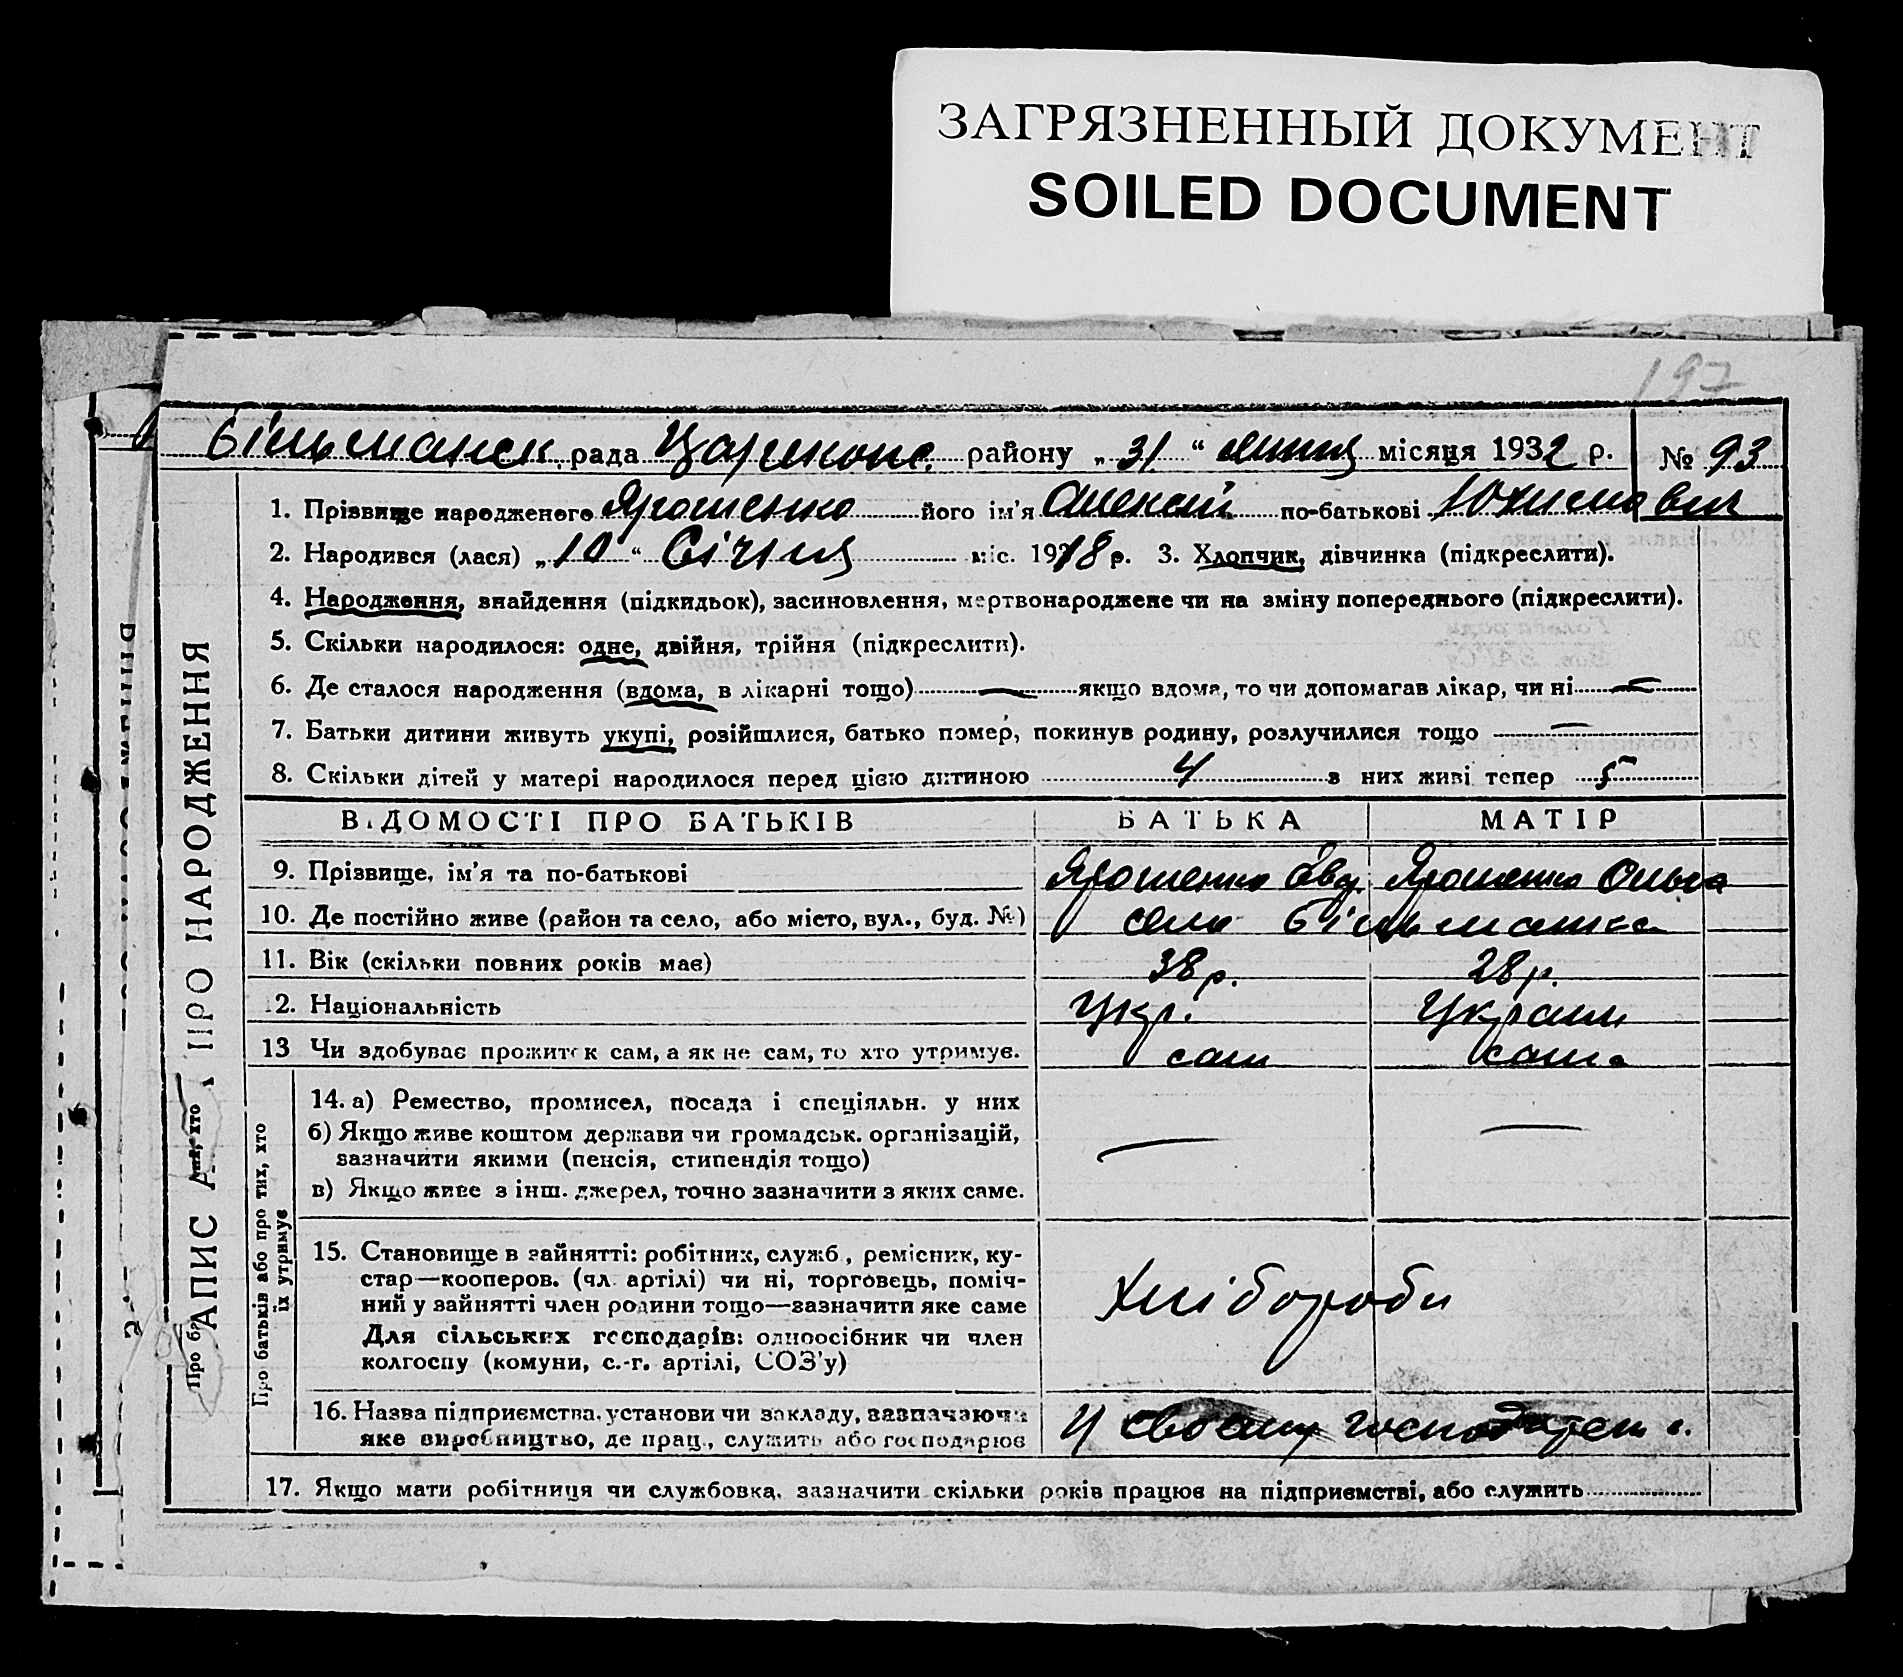 ЗАГРЯЗНЕННЫЙ ДОКУМЕНТ
SOILED DOCUMENT
197
Більманск. рада Царекопс. району „31“ липця місяця 1932 р. № 93
1. Прізвище народженого Ярошенко його ім'я Алексій по-батькові
2. Народився (лася) „10“ Січня міс. 1918 р. 3. Хлопчик, дівчинка (підкреслити).
4. Народження, знайдення (підкидьок), засиновлення, мертвонароджене чи на зміну попереднього (підкреслити).
5. Скільки народилося: одне, двійня, трійня (підкреслити).
6. Де сталося народження (вдома, в лікарні тощо) — якщо вдома, то чи допомагав лікар, чи ні —
7. Батьки дитини живуть укупі, розійшлися, батько помер, покинув родину, розлучилися тощо —
8. Скільки дітей у матері народилося перед цією дитиною 4 з них живі тепер 5
ВІДОМОСТІ ПРО БАТЬКІВ БАТЬКА МАТІР
9. Прізвище, ім'я та по-батькові Ярошенко Явд. Ярошенко Ольга
10. Де постійно живе (район та село, або місто, вул., буд. №) село Більманка
11. Вік (скільки повних років має) 38 р. 28 р.
12. Національність Укр. Україн
13 Чи здобуває прожиток сам, а як не сам, то хто утримує. сам сама
14. а) Ремество, промисел, посада і спеціяльн. у них
б) Якщо живе коштом держави чи громадськ. організацій,
зазначити якими (пенсія, стипендія тощо) — —
в) Якщо живе з інш. джерел, точно зазначити з яких саме.
15. Становище в зайнятті: робітник, служб., ремісник, ку-
стар—кооперов. (чл. артілі) чи ні, торговець, поміч-
ний у зайнятті член родини тощо—зазначити яке саме
Хліборобі
Для сільських господарів: одноосібник чи член
колгоспу (комуни, с.-г. артілі, СОЗ'у)
16. Назва підприємства, установи чи закладу, зазначаючи
яке виробництво, де прац., служить або господарює У своему
17. Якщо мати робітниця чи службовка, зазначити скільки років працює на підприємстві, або служить
ЗАПИС АКТА ПРО НАРОДЖЕННЯ
Про батьків або про тих, хто
їх утримує